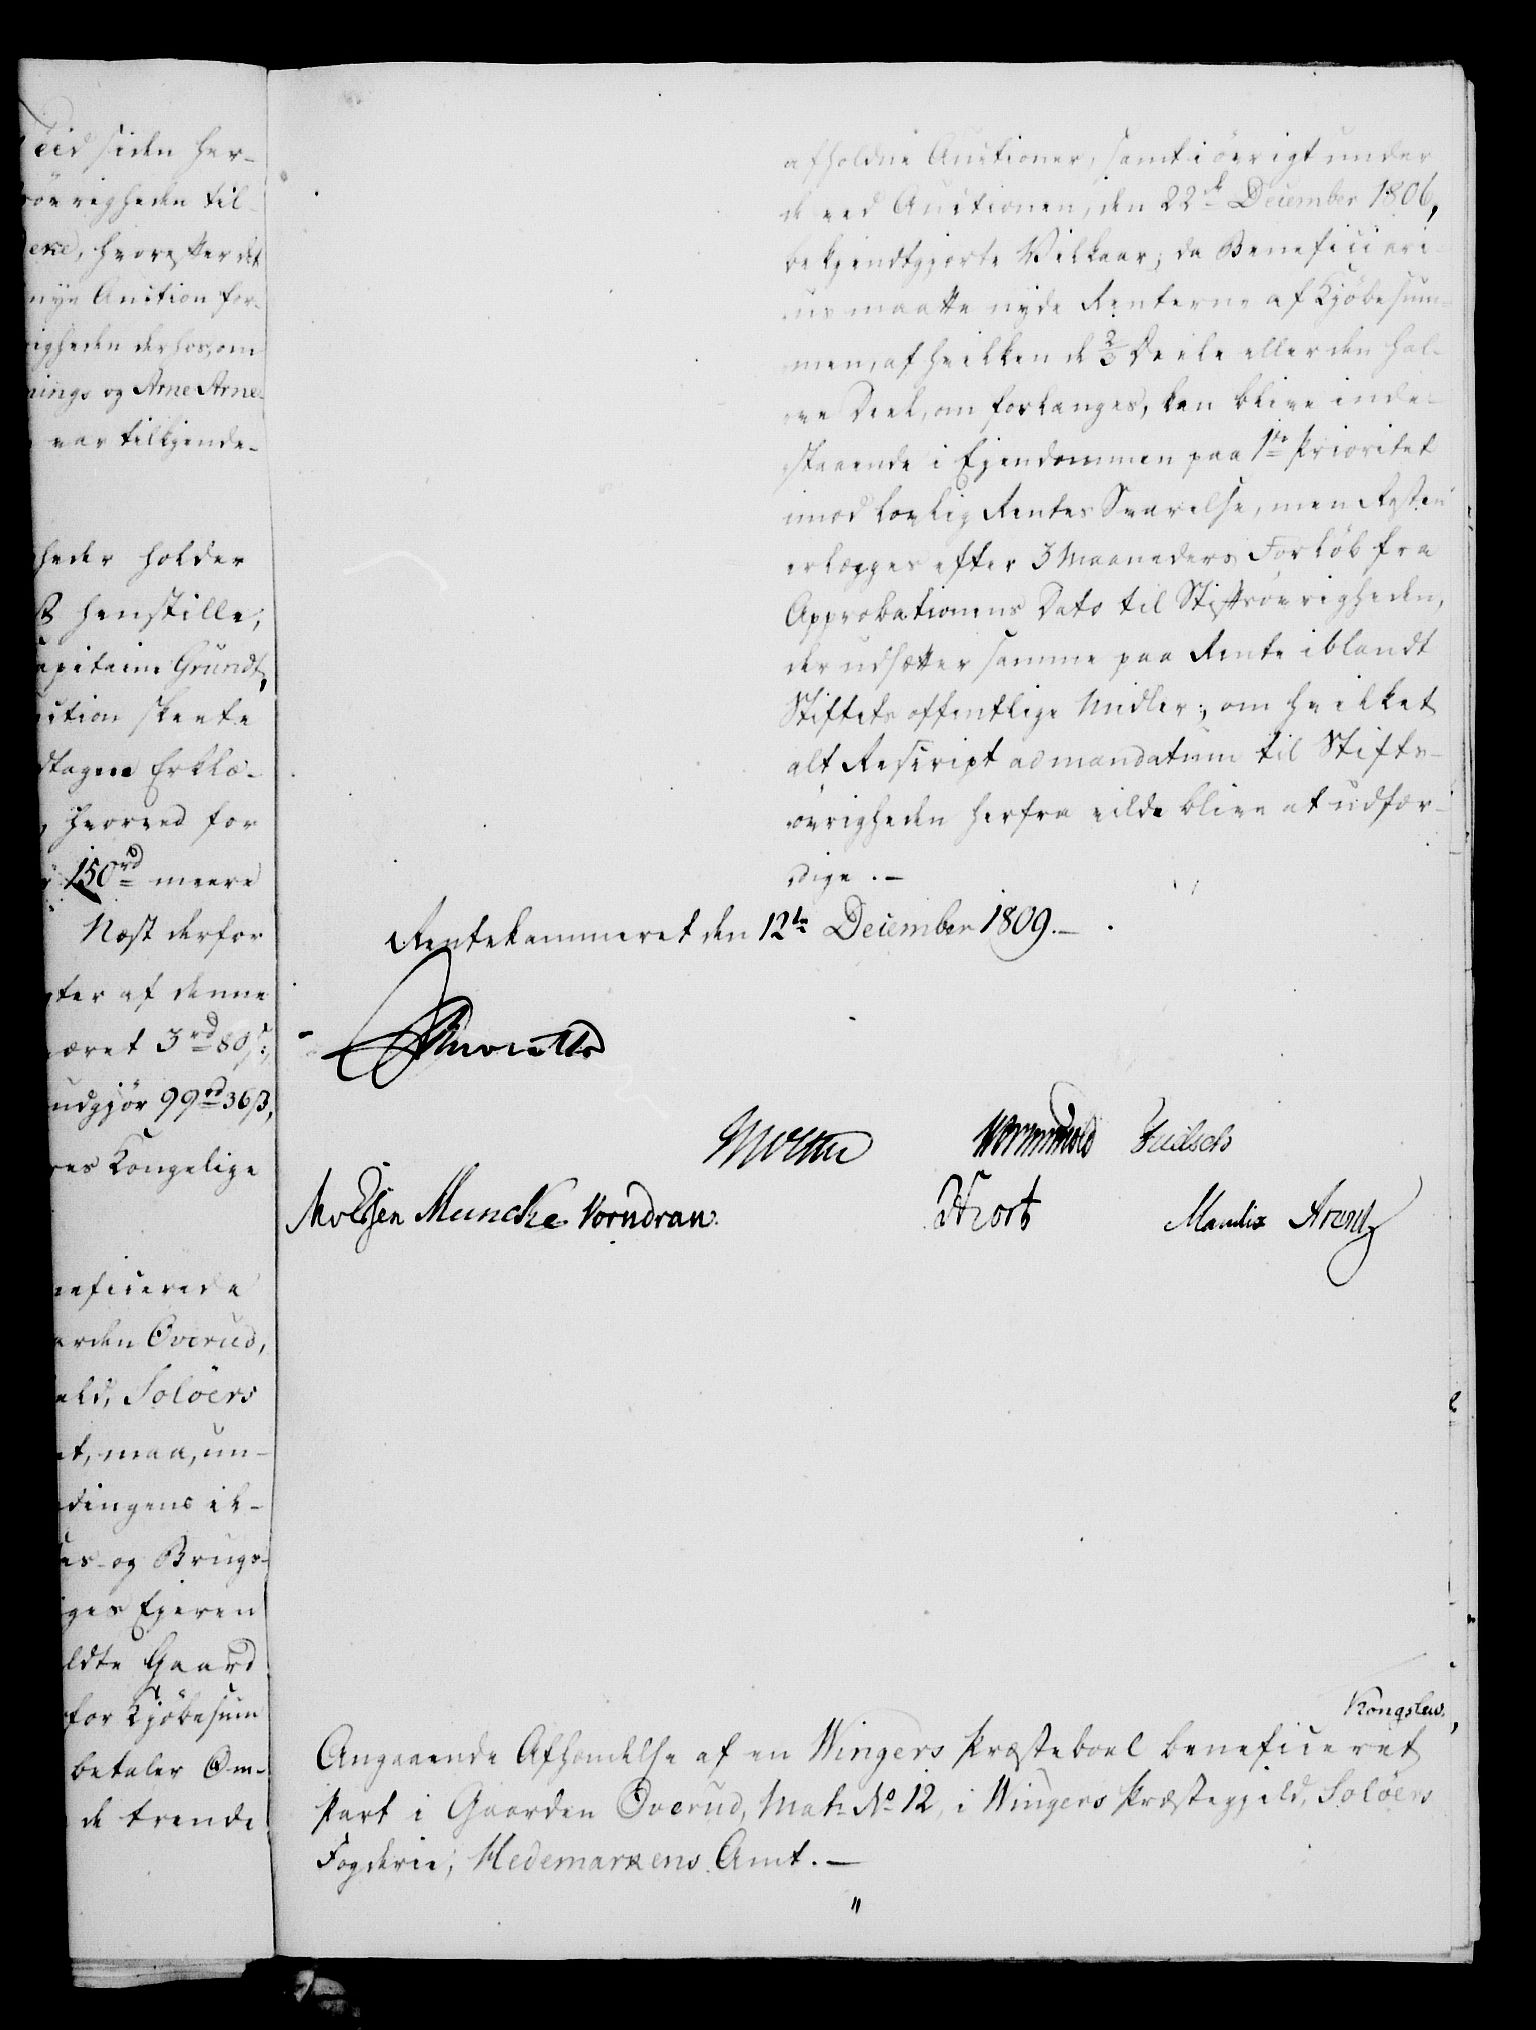 Tid siden her-
övrigheden til-
hvorefter det
nye Auction for-
righeden derhos, om
nings og Arne Arne-
var tilkjende-
heder holder
henstille;
apitaine Grundt,
uction skeete
dtagne Erklæ-
, hvorved for
150 rd meere
Næst derfor
ter af denne
æret 3 rd 80 s:,
udgjör 99 rd 36 ß,
res Kongelige
neficerede
arden Overud,
eld, Solöers
et, maa, un-
dingens il-
es- og Brugs-
iges Ejeren
ldte Gaard
for Kjöbesum
betaler Om-
de trende
afholdne Auctioner, samt i övrigt under
de ved Auctionen, den 22de December 1806,
bekjendtgjorte Vilkaar; da Beneficiari-
us maatte nyde Renterne af Kjöbesum-
men, af hvilken de 2/3 Deele eller den hal-
ve Deel, om forlanges, kan blive inde-
staaende i Ejendommen paa 1ste Prioritet
imod lovlig Rentes Svarelse, men Resten
erlægges efter 3 Maaneders Forlöb fra
Approbationens Dato til Stiftsövrigheden,
der udsætter samme paa Rente iblandt
Stiftets offentlige Midler:, om hvilket
alt Rescript ad mandatum til Stifts-
övrigheden herfra vilde blive at udfær-
dige. —
Rentekammeret den 12te December 1809. —
Moltke Wormskiold
Muncke Vorndran.
Hort Mandix Arentz
Kongslew,
Angaaende Afhændelse af en Wingers Præsteboel beneficeret
Part i Gaarden Overud, Matr No 12, i Wingers Præstegjeld, Solöers
Fogderie, Hedemarkens Amt. —
"